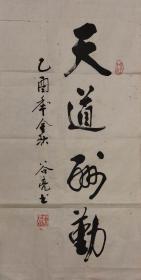 天道酬勤
乙酉年金秋 谷亮书